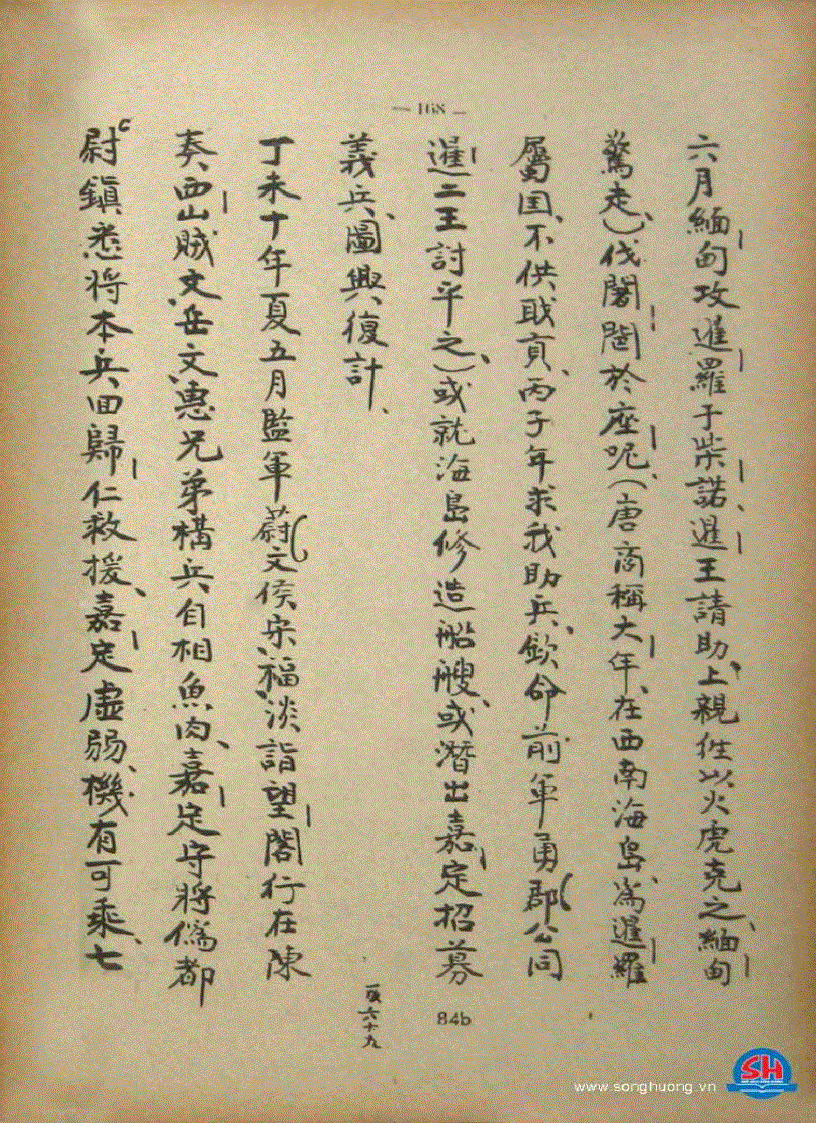 — 168 —
六月緬甸攻暹羅于柴諾、暹王請助、上親往以火虎克之、緬甸
驚走、伐闍閫於座呢、(唐商稱大年、在西南海島、為暹羅
屬国、不供職貢、丙子年求我助兵、欽命前軍勇郡公同
暹二王討平之、)或就海島修造船艘、或潛出嘉定招募
義兵、圖興復計、
丁未十年夏五月監軍蔚文侯宋福淡詣望閣行在陳
奏、西山賊文岳文惠兄弟構兵自相魚肉、嘉定守將偽都
尉鎮悉將本兵回歸仁救援、嘉定虛弱、機有可乘、七
六十九
84b
www.songhuong.vn
SH